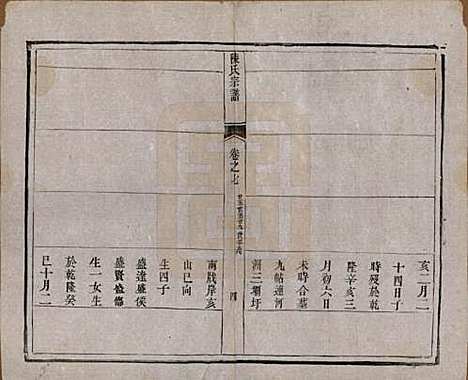 亥二月二
十四日子
時歿於乾
隆辛亥三
月初六日
未時合墓
九帖連河
洲三圳圩
陳氏宗譜
卷之七
四
南戕岸亥
山巳向
生四子
盛達盛侯
盛賢盛儒
生一女生
於乾隆癸
巳十月二